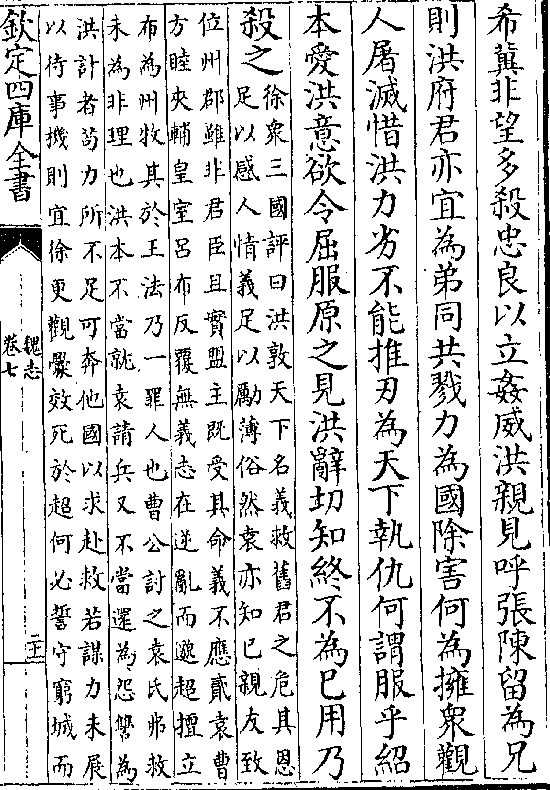 希冀非望多殺忠良以立姦威洪親見呼張陳留為兄
則洪府君亦宜為弟同共戮力為國除害何為擁衆觀
人屠滅惜洪力劣不能推刃為天下執仇何謂服乎紹
本愛洪意欲令屈服原之見洪辭切知終不為已用乃
殺之
徐衆三國評曰洪敦天下名義救舊君之危其恩
足以感人情義足以勵薄俗然袁亦知已親友致
位州郡雖非君臣且實盟主既受其命義不應貳袁曹
方睦夾輔皇室呂布反覆無義志在逆亂而邈超擅立
布為州牧其於王法乃一罪人也曹公討之袁氏弗救
未為非理也洪本不當就袁請兵又不當還為怨讐為
洪計者苟力所不足可奔他國以求赴救若謀力未展
以待事機則宜徐更觀釁效死於超何必誓守窮城而
欽定四庫全書
魏志
卷七
二十一